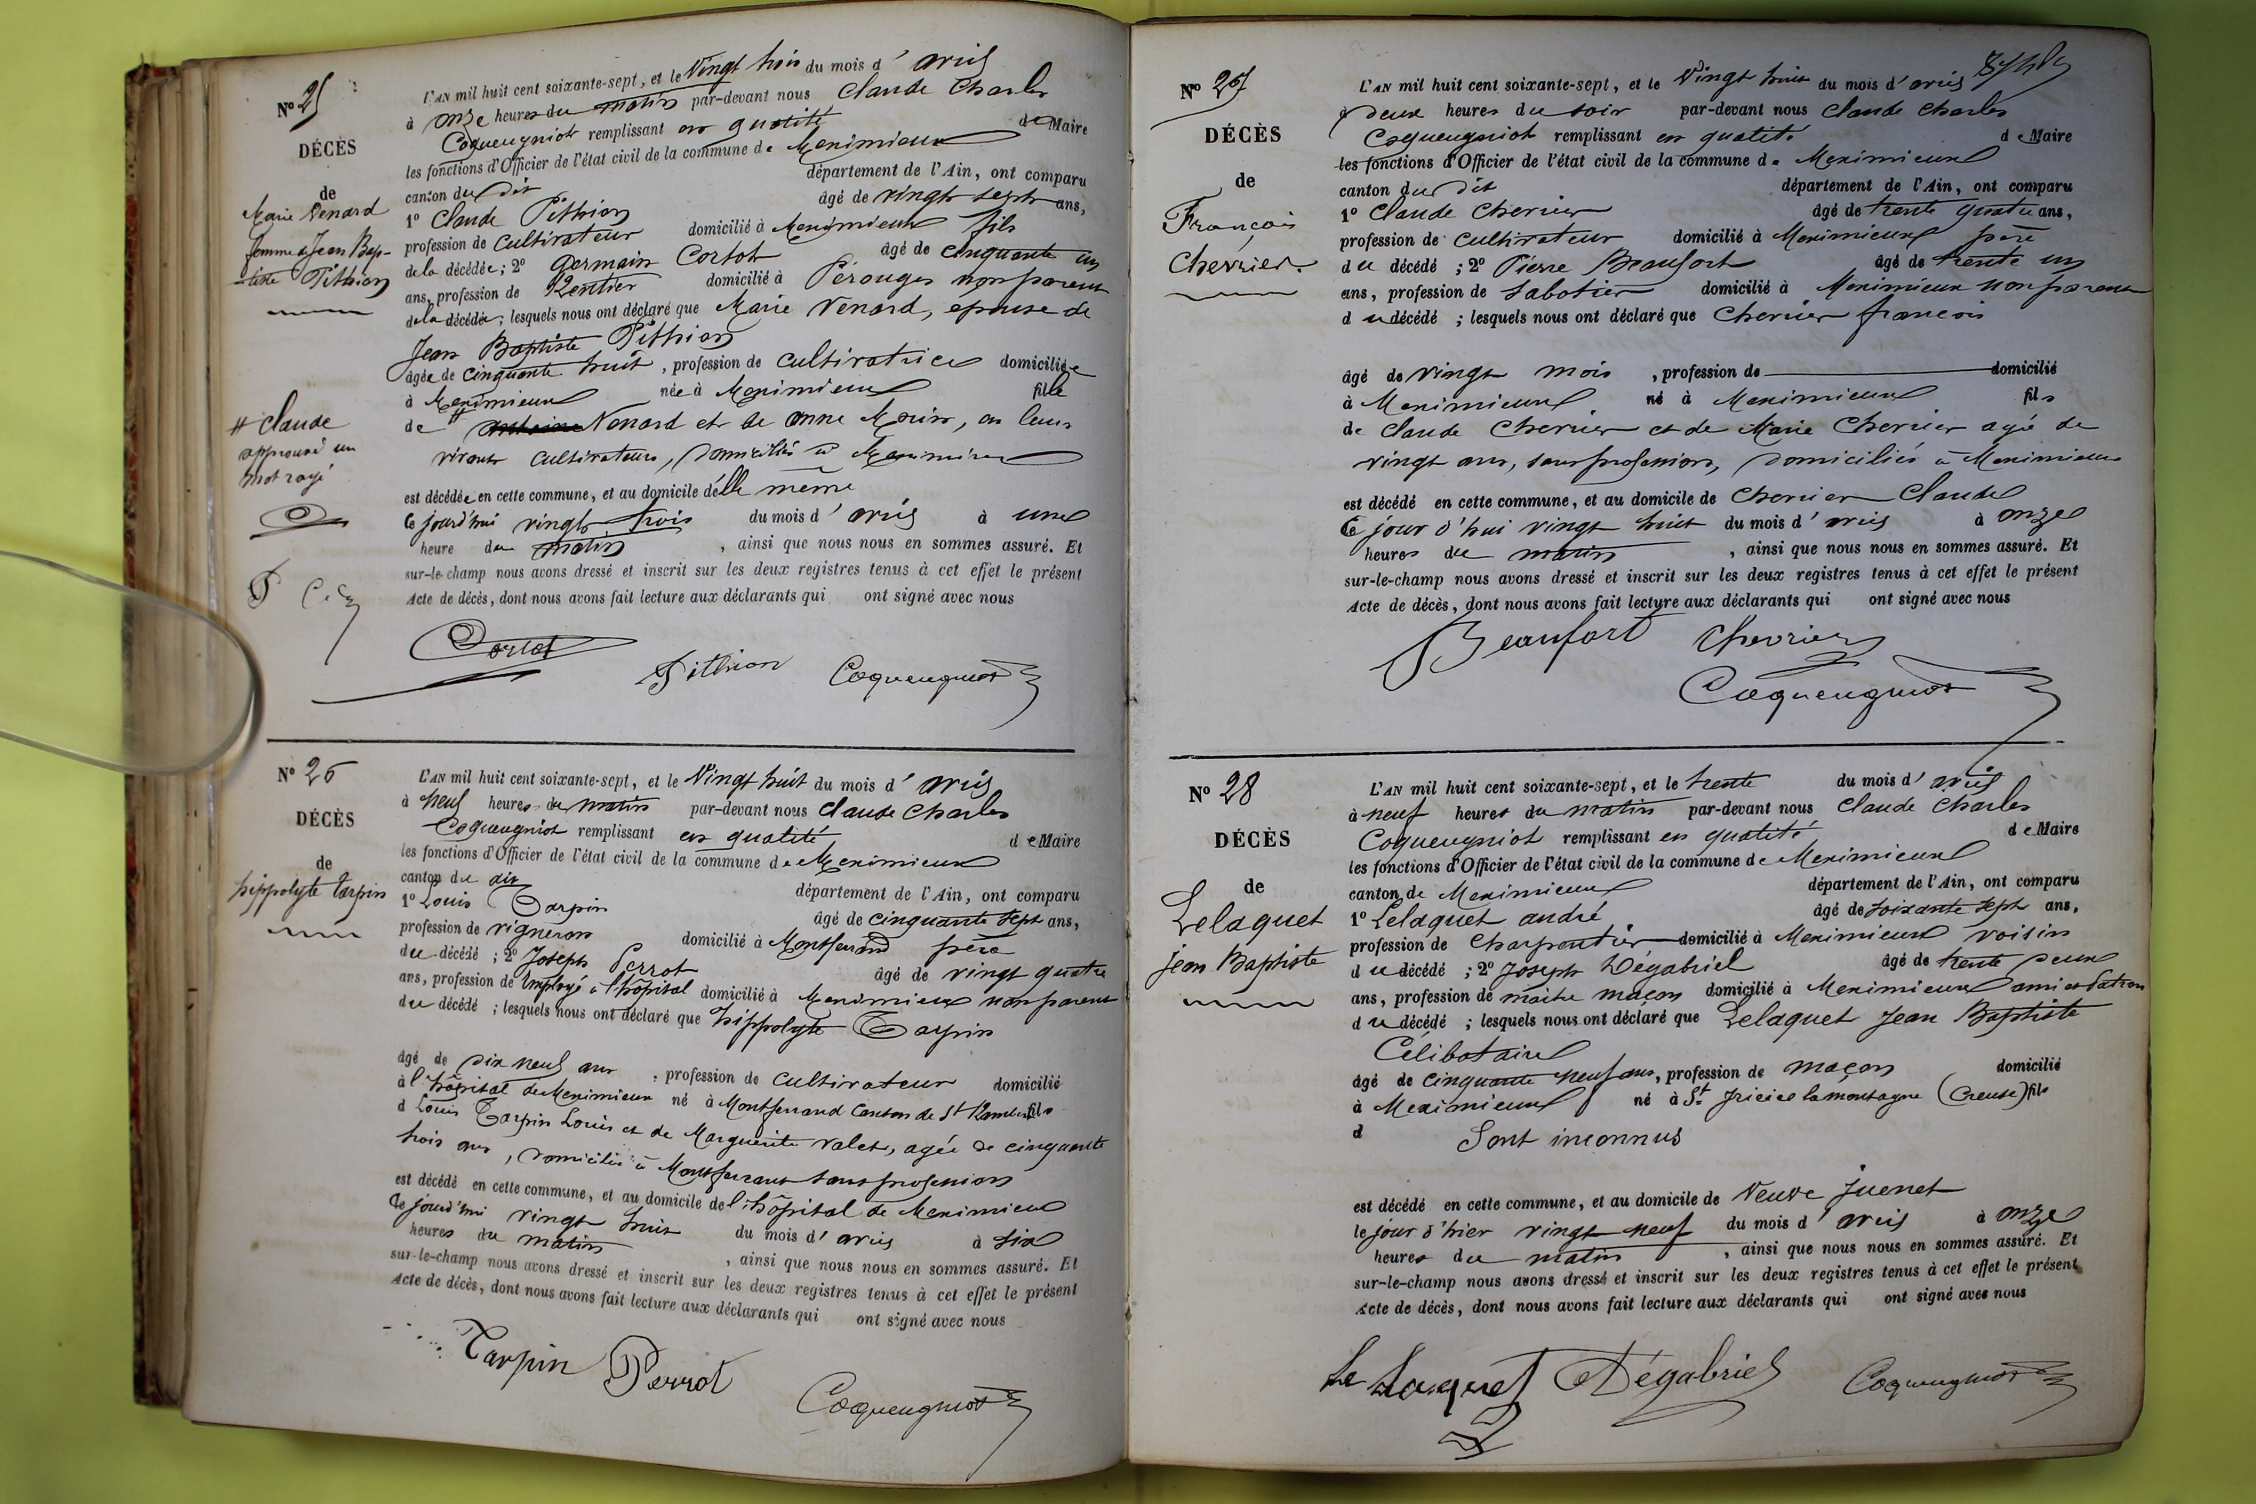 Nº 25
DÉCÈS
de
Marie Venard
femme de Jean Bap-
-tiste Pithion
# Claude
approuvé un
mot rayé
P C.C
L'AN mil huit cent soixante-sept, et le Vingt trois du mois d' avril
à onze heures du matin par-devant nous Claude Charles
Coqueugniot remplissant en qualité de Maire
les fonctions d'Officier de l'état civil de la commune de Meximieux
canton du dit département de l'Ain, ont comparu
1º Claude Pithion âgé de vingt sept ans,
profession de cultivateur domicilié à Meximieux fils
de la décédée; 2º Germain Cortot âgé de cinquante un
ans, profession de Rentier domicilié à Pérouges non parent
de la décédée; lesquels nous ont déclaré que Marie Venard, épouse de
Jean Baptiste Pithion
âgée de cinquante huit, profession de cultivatrice domiciliée
à Meximieux née à Meximieux fille
de # Venard et de Anne Morin, en leurs
vivants cultivateurs, domiciliés à Meximieux
est décédée en cette commune, et au domicile d'elle même
Ce jourd'hui vingt trois du mois d' avril à une
heure du matin, ainsi que nous nous en sommes assuré. Et
sur-le-champ nous avons dressé et inscrit sur les deux registres tenus à cet effet le présent
Acte de décès, dont nous avons fait lecture aux déclarants qui ont signé avec nous
Cortot
Pithion Coqueugniot
Nº 26
DÉCÈS
de
hippolyte Tarpin
L'AN mil huit cent soixante-sept, et le Vingt huit du mois d' avril
à neuf heures du matin par-devant nous Claude Charles
Coqueugniot remplissant en qualité de Maire
les fonctions d'Officier de l'état civil de la commune de Meximieux
canton du dit département de l'Ain, ont comparu
1º Louis Tarpin âgé de cinquante sept ans,
profession de vigneron domicilié à Montferrand père
du décédé; 2º Joseph Perrot âgé de vingt quatre
ans, profession de Employé à l'hôpital domicilié à Meximieux non parent
du décédé; lesquels nous ont déclaré que hippolyte Tarpin
âgé de dix neuf ans, profession de cultivateur domicilié
à l'hôpital de Meximieux né à Montferrand Canton de St Rambert fils
d Louis Tarpin Louis et de Marguerite Valet, agée de cinquante
trois ans, domiciliés à Montferrand sans profession
est décédé en cette commune, et au domicile de l'hôpital de Meximieux
Ce jourd'hui vingt huit du mois d' avril à six
heures du matin, ainsi que nous nous en sommes assuré. Et
sur-le-champ nous avons dressé et inscrit sur les deux registres tenus à cet effet le présent
Acte de décès, dont nous avons fait lecture aux déclarants qui ont signé avec nous
Tarpin Perrot
Coqueugniot
Nº 27
DÉCÈS
de
François
Chevrier.
L'AN mil huit cent soixante-sept, et le Vingt huit du mois d' avril
à deux heures du soir par-devant nous Claude Charles
Coqueugniot remplissant en qualité de Maire
les fonctions d'Officier de l'état civil de la commune de Meximieux
canton du dit département de l'Ain, ont comparu
1º Claude Chevrier âgé de trente quatre ans,
profession de cultivateur domicilié à Meximieux père
du décédé; 2º Pierre Beaufort âgé de trente un
ans, profession de sabotier domicilié à Meximieux non parent
du décédé; lesquels nous ont déclaré que Chevrier françois
âgé de vingt mois, profession de domicilié
à Meximieux né à Meximieux fils
de Claude Chevrier et de Marie Chevrier agé de
vingt ans, sans profession, domiciliés à Meximieux
est décédé en cette commune, et au domicile de Chevrier Claude
Ce jour d'hui vingt huit du mois d' avril à onze
heures du matin, ainsi que nous nous en sommes assuré. Et
sur-le-champ nous avons dressé et inscrit sur les deux registres tenus à cet effet le présent
Acte de décès, dont nous avons fait lecture aux déclarants qui ont signé avec nous
Beaufort Chevrier
Coqueugniot
Nº 28
DÉCÈS
de
Lelaquet
jean Baptiste
L'AN mil huit cent soixante-sept, et le trente du mois d' avril
à neuf heures du matin par-devant nous Claude Charles
Coqueugniot remplissant en qualité de Maire
les fonctions d'Officier de l'état civil de la commune de Meximieux
canton de Meximieux département de l'Ain, ont comparu
1º Lelaquet andré âgé de soixante sept ans,
profession de Charpentier domicilié à Meximieux voisin
du décédé; 2º Joseph Dégabriel âgé de trente deux
ans, profession de maitre maçon domicilié à Meximieux ami et patron
du décédé; lesquels nous ont déclaré que Lelaquet Jean Baptiste
Célibataire
âgé de cinquante neuf ans, profession de maçon domicilié
à Meximieux né à St la montagne (Creuse) fils
d Sont inconnus
est décédé en cette commune, et au domicile de Veuve Juenet
le jour d'hier vingt neuf du mois d' avril à onze
heures du matin, ainsi que nous nous en sommes assuré. Et
sur-le-champ nous avons dressé et inscrit sur les deux registres tenus à cet effet le présent
Acte de décès, dont nous avons fait lecture aux déclarants qui ont signé avec nous
Le Laquet Dégabriel Coqueugniot